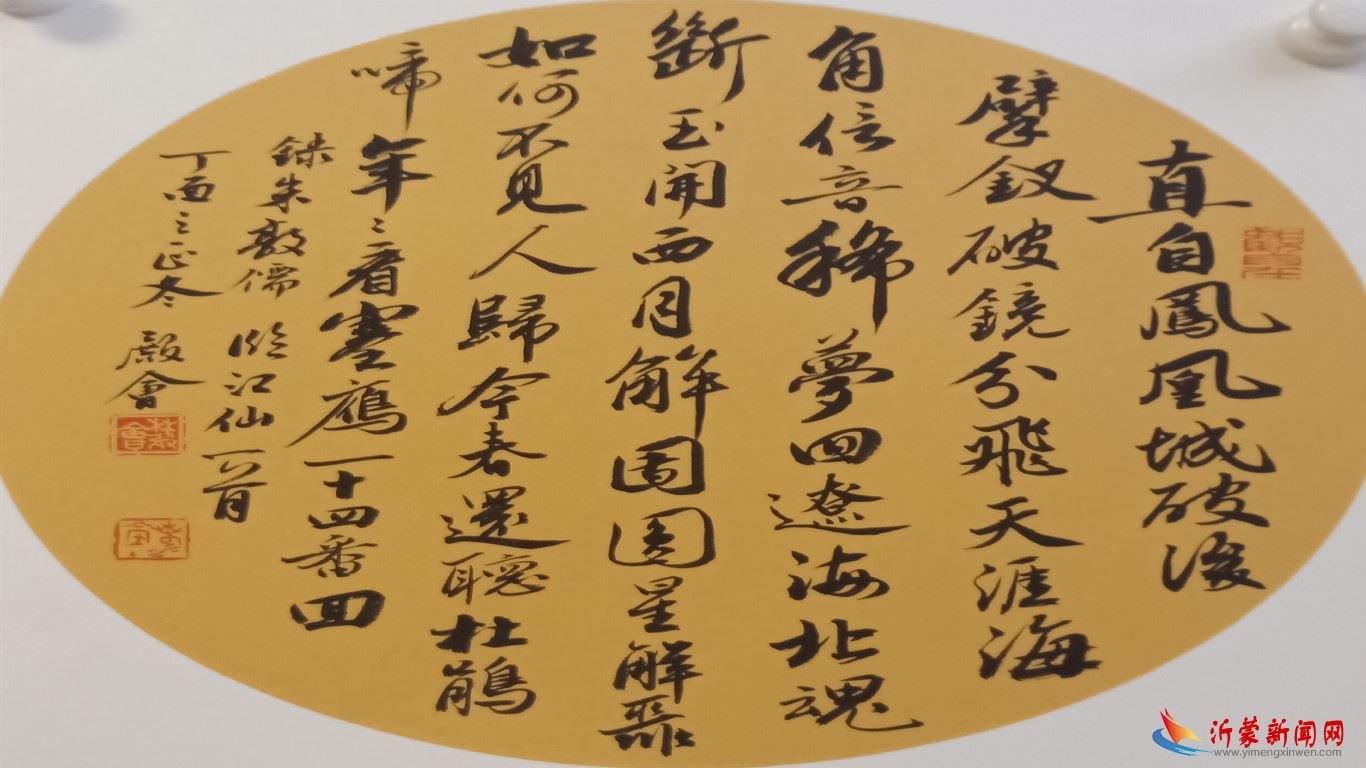 直自鳳凰城破後
擘釵破鏡分飛天涯海
角信音稀夢回遼海北魂
斷玉開西月解團圓星解聚
如何不見人歸今春還聽杜鵑
啼年〻看塞鴈一十四番回
錄朱敦儒 臨江仙一首
丁酉之 冬 殿會
沂蒙新闻网
www.yimengxinwen.com